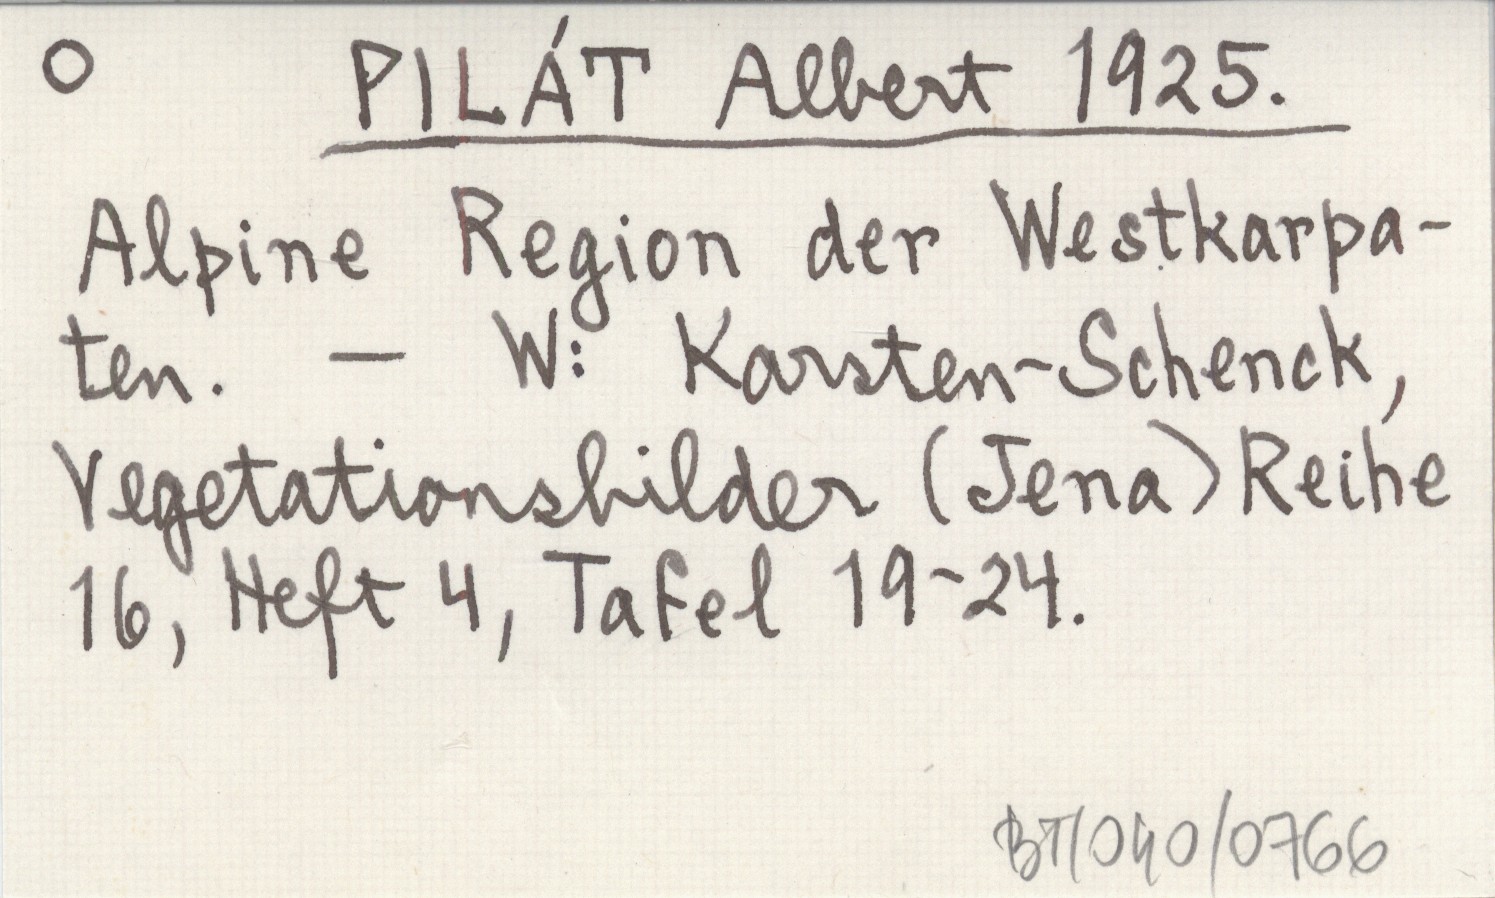 O PILÁT Albert 1925.
Alpine Region der Westkarpa-
ten. — W: Karsten-Schenck,
Vegetationsbilder (Jena) Reihe
16, Heft 4, Tafel 19-24.
BT/040/0766